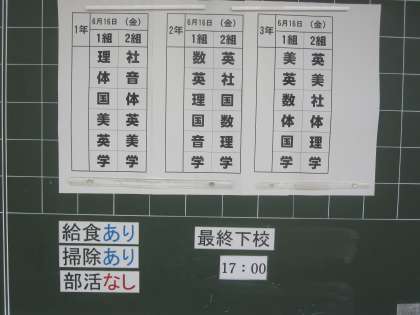 1年 6月16日 (金)
1組 2組
理 社
体 音
国 体
美 英
英 美
学 学
2年 6月16日 (金)
1組 2組
数 英
英 社
理 国
国 数
音 理
学 学
3年 6月16日 (金)
1組 2組
美 英
英 美
数 社
体 体
国 理
学 学
給食あり
掃除あり
部活なし
最終下校
17:00